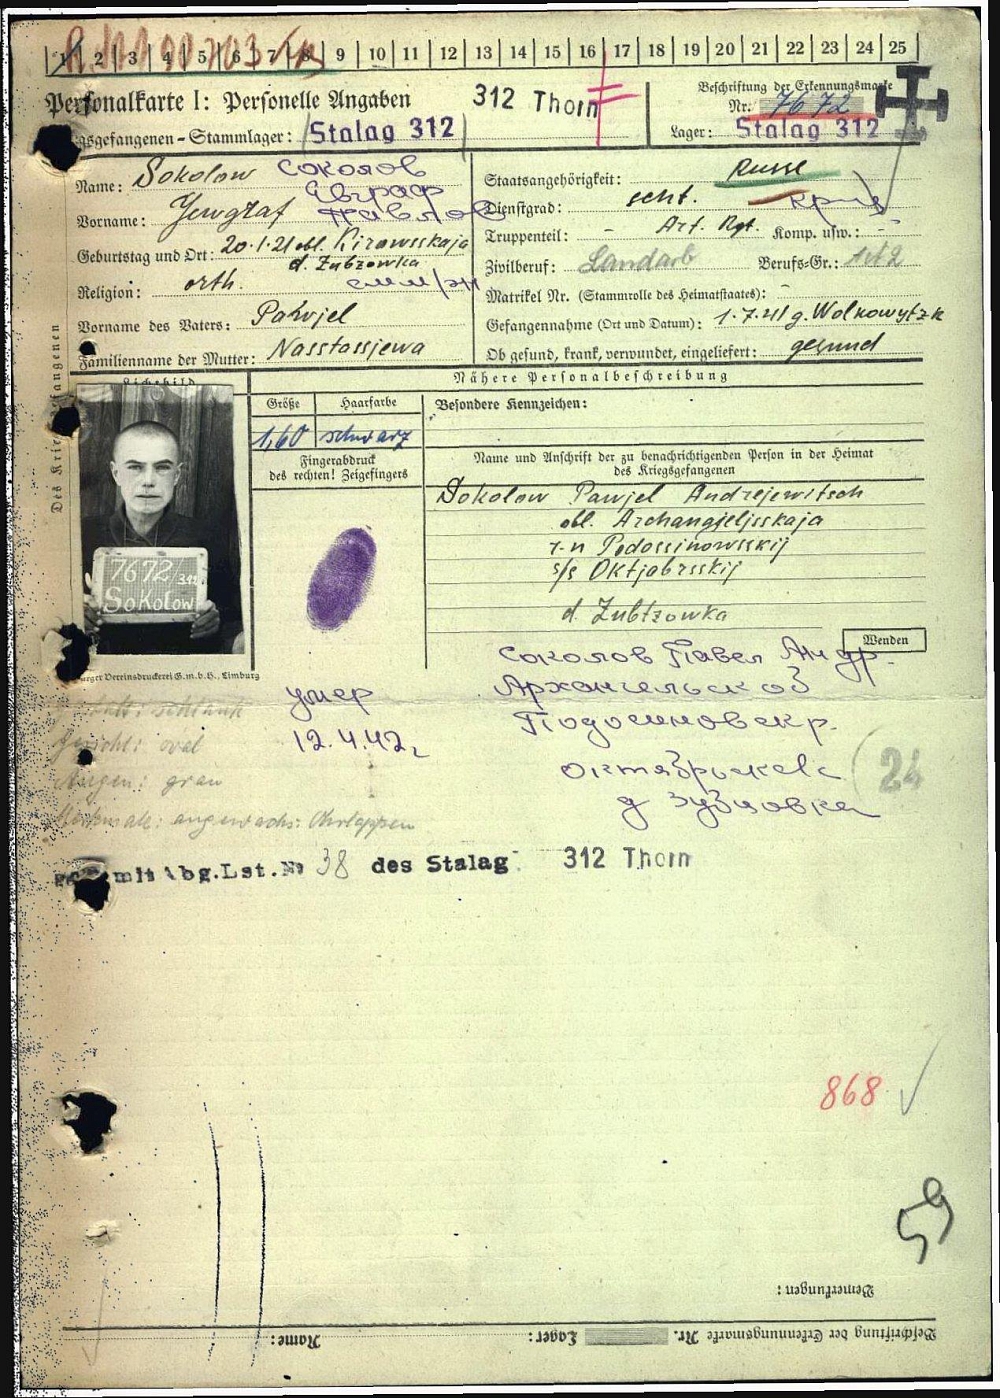 1 2 3 4 5 6 7 8 9 10 11 12 13 14 15 16 17 18 19 20 21 22 23 24 25
Personalkarte I: Personelle Angaben
312 Thorn
Beschriftung der Erkennungsmarke
Nr. 7672
gsgefangenen-Stammlager: Stalag 312
Lager: Stalag 312
Des Krie fangenen
Name: Sokolow Соколов
Евграф
Vorname: Jewgraf Павлов
Geburtstag und Ort: 20.1.21 obl. Kirowsskaja
d. Zubzowka
Religion: orth.
Vorname des Vaters: Pawjel
Familienname der Mutter: Nasstassjewa
Staatsangehörigkeit: Russe
Dienstgrad:
Truppenteil: - Art. Rgt. Komp. usw.: -
Zivilberuf: Landarb Berufs-Gr.:
Matrikel Nr. (Stammrolle des Heimatstaates): -
Gefangennahme (Ort und Datum): 1.7.41 g. Wolkowytzk
Ob gesund, krank, verwundet, eingeliefert: gesund
Lichtbild
7672 312
Sokolow
Nähere Personalbeschreibung
Größe Haarfarbe
1,60 schwarz
Fingerabdruck
des rechten! Zeigefingers
Besondere Kennzeichen:
Name und Anschrift der zu benachrichtigenden Person in der Heimat
des Kriegsgefangenen
Sokolow Pawjel Andrejewitsch
obl. Archangjeljsskaja
r-n Podossinowsskij
s/s Oktjabrsskij
d. Zubtzowka
Wenden
urger Vereinsdruckerei G.m.b.H., Limburg
Соколов Павел Андр.
Архангельской
Подосиновск р.
Октябрьский с
д Зубцовка
умер
12.4.42 г
24
Gestalt: schlank
Gesicht: oval
Augen: grau
Merkmale: angewachs. Ohrlappen
mit Abg.Lst.№ 38 des Stalag 312 Thorn
868
59
Bemerkungen:
Beschriftung der Erkennungsmarke Nr. Lager: Name: